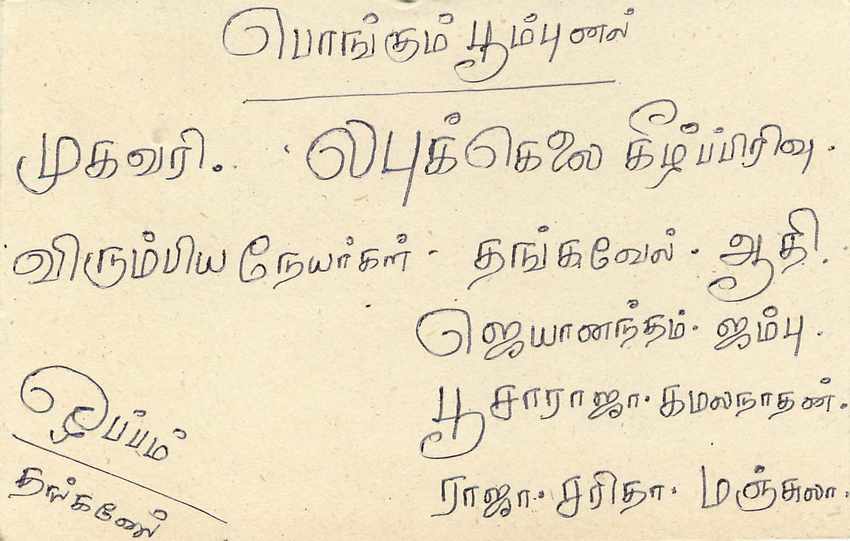 பொங்கும் பூம்புனல்
முகவரி. லபுக்கெலை கீழ்ப்பிரிவு.
விரும்பிய நேயர்கள் - தங்கவேல். ஆதி.
ஜெயானந்தம். ஜம்பு.
பூசாராஜா. கமலநாதன்.
ராஜா. சரிதா. மஞ்சுலா.
ஒப்பம்